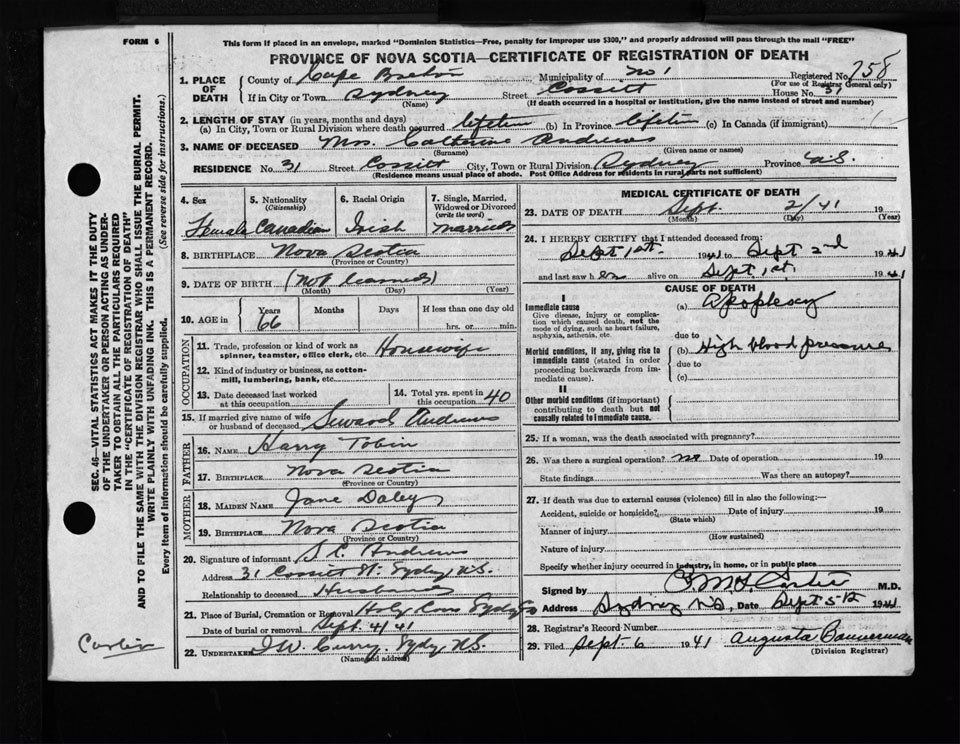 FORM 6
This form if placed in an envelope, marked "Dominion Statistics—Free, penalty for improper use $300," and properly addressed will pass through the mail "FREE"
PROVINCE OF NOVA SCOTIA—CERTIFICATE OF REGISTRATION OF DEATH
1. PLACE OF DEATH
County of Cape Breton Municipality of No 1 Registered No. 758
(For use of Registrar General only)
If in City or Town Sydney Street Cossitt House No. 31
(Name) (If death occurred in a hospital or institution, give the name instead of street and number)
2. LENGTH OF STAY (in years, months and days)
(a) In City, Town or Rural Division where death occurred lifetime (b) In Province lifetime (c) In Canada (if immigrant)
3. NAME OF DECEASED Mrs. Catherine Andrews
(Surname) (Given name or names)
RESIDENCE No. 31 Street Cossitt City, Town or Rural Division Sydney Province N.S.
(Residence means usual place of abode. Post Office Address for residents in rural parts not sufficient)
4. Sex 5. Nationality (Citizenship) 6. Racial Origin 7. Single, Married, Widowed or Divorced (write the word)
Female Canadian Irish Married
8. BIRTHPLACE Nova Scotia
(Province or Country)
9. DATE OF BIRTH (Not
(Month) (Day) (Year)
10. AGE in Years Months Days If less than one day old
66 hrs. or min.
OCCUPATION
11. Trade, profession or kind of work as spinner, teamster, office clerk, etc. Housewife
12. Kind of industry or business, as cotton-mill, lumbering, bank, etc.
13. Date deceased last worked at this occupation 14. Total yrs. spent in this occupation 40
15. If married give name of wife or husband of deceased Seward Andrews
FATHER
16. NAME Harry Tobin
17. BIRTHPLACE Nova Scotia
(Province or Country)
MOTHER
18. MAIDEN NAME Jane Daley
19. BIRTHPLACE Nova Scotia
(Province or Country)
20. Signature of informant S.C. Andrews
Address 31 Cossitt St. Sydney, N.S.
Relationship to deceased Husband
21. Place of Burial, Cremation or Removal Holy Cross Sydney
Date of burial or removal Sept. 4/41
22. UNDERTAKER J.W. Curry. Sydney N.S.
(Name and address)
MEDICAL CERTIFICATE OF DEATH
23. DATE OF DEATH Sept. 2/41 19
(Month) (Day) (Year)
24. I HEREBY CERTIFY that I attended deceased from:
Sept 1st. 1941 to Sept 2nd 1941
and last saw h er alive on Sept. 1st. 1941
CAUSE OF DEATH
I
Immediate cause (a) Apoplexy
Give disease, injury or complication which caused death, not the mode of dying, such as heart failure, asphyxia, asthenia, etc.
due to
Morbid conditions, if any, giving rise to immediate cause (stated in order proceeding backwards from immediate cause).
(b) High blood pressure
due to
(c)
II
Other morbid conditions (if important) contributing to death but not causally related to immediate cause.
25. If a woman, was the death associated with pregnancy?
26. Was there a surgical operation? no Date of operation 19
State findings Was there an autopsy?
27. If death was due to external causes (violence) fill in also the following:—
Accident, suicide or homicide? Date of injury 19
(State which)
Manner of injury
(How sustained)
Nature of injury
Specify whether injury occurred in industry, in home, or in public place
Signed by M.D.
Address Sydney N.S. Date Sept 5th 1941
28. Registrar's Record Number
29. Filed Sept. 6 1941 Augusta Bannerman
(Division Registrar)
SEC. 46—VITAL STATISTICS ACT MAKES IT THE DUTY OF THE UNDERTAKER OR PERSON ACTING AS UNDERTAKER TO OBTAIN ALL THE PARTICULARS REQUIRED IN THE "CERTIFICATE OF REGISTRATION OF DEATH"
AND TO FILE THE SAME WITH THE DIVISION REGISTRAR WHO SHALL ISSUE THE BURIAL PERMIT.
WRITE PLAINLY WITH UNFADING INK. THIS IS A PERMANENT RECORD.
Every item of information should be carefully supplied. (See reverse side for instructions.)